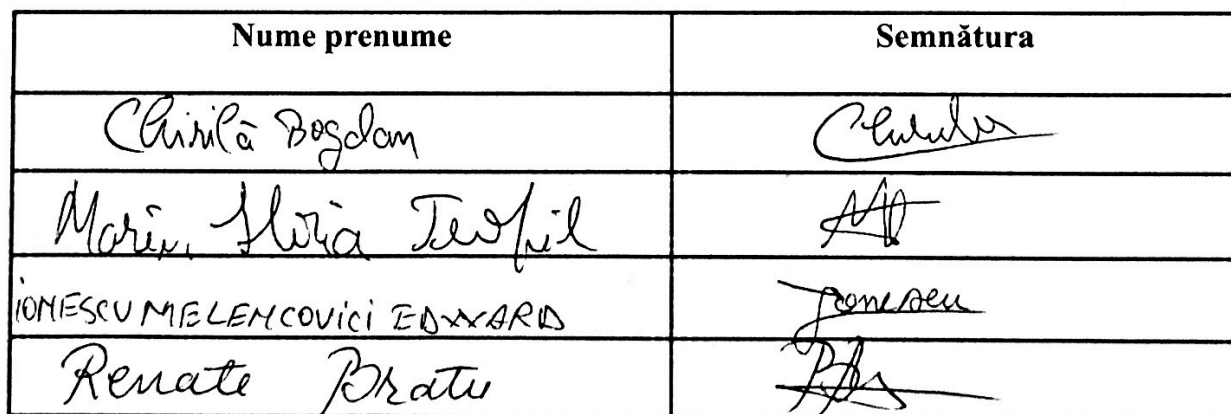 Nume prenume Semnătura
Chirilă Bogdan
Marin, Teofil
IONESCU MELENCOVICI EDWARD Ionescu
Renate Bratu